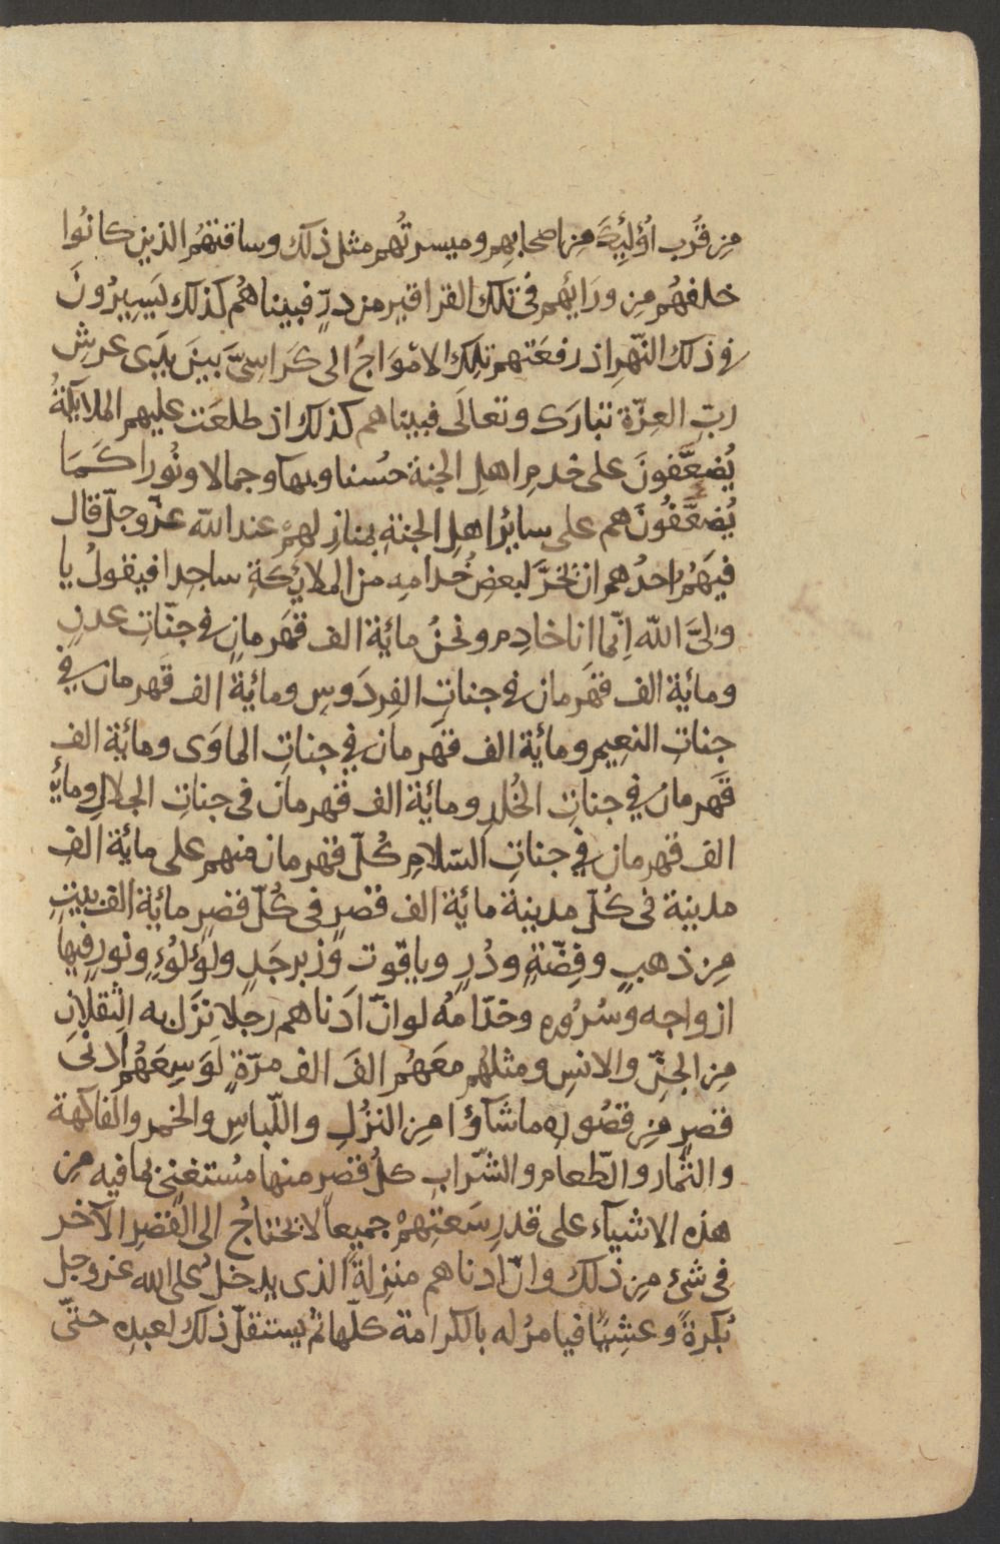 مِن قُرب اُولٰئِكَ من اصحابهم وميسرتُهم مثل ذلك وساقتهُم الذين كانُوا
خلفهُم مِن ورَائهم فى تلك القراقير من درٍّ فبيناهُم كذلك يَسِيرُونَ
فى ذلك النّهرِ اذ رفعَتهم تلك الامْوَاجُ الى كَرَاسِىَّ بينَ يدَى عرشِ
ربِّ العِزّة تبارَك وتعالَى فبيناهم كذلك اذ طلعَت عليهم الملآئكةُ
يُضعَّفونَ على خدم اهلِ الجنة حُسنا وبهآ وجمالا ونُورا كَمَا
يُضعَّفُونَ هم على سائر اهلِ الجنةِ بمنازِلهِمْ عند الله عزّ وجلّ قال
فيَهُمُّ احدُهم ان يَخرَّ لبعضِ خُدامِهِ من الملائكةِ ساجدا فيقولُ يا
ولىَّ الله اِنّما انا خادِم ونحنُ مائة الف قهرمانٍ فى جنّاتِ عدنٍ
ومائة الف قهَرمان فى جناتِ الفِردَوسِ ومائة الف قَهرمان فى
جناتِ النعِيم ومائة الف قهَرمان فى جناتِ الماوَى ومائة الف
قَهرمان فى جناتِ الخُلدِ ومائة الف قهرمان فى جناتِ الجلالِ ومائة
الف قهرمان فى جناتِ السّلامِ كُلّ قهرمان منهم على مائة الفِ
مدينة فى كُلّ مدينة مائة الف قصرٍ فى كُلّ قصرٍ مائة الف بيتٍ
مِن ذهبٍ وفِضّةٍ ودُرٍ وياقوت وزبرجَدٍ ولؤلُؤٍ ونورٍ فيها
ازواجه وسُرُوره وخدّامُه لو انّ اَدناهم رجلا نزَل به الثقلانِ
مِن الجنِّ والانسِ ومثلهُم معَهُم الفَ الف مرّةٍ لَوَسِعَهُم اَدنَى
قصرٍ مِن قصُورِه ما شَآؤا مِن النزُلِ واللّباسِ والخمر والفاكهة
والثّمار والطّعام والشّرابِ كلُّ قصرٍ منها مُستغنِى بما فيه مِن
هذه الاشيآء على قدرِ سَعتِهِمْ جميعاً لا يحتاجُ الى القصرِ الآخر
فى شئ مِن ذلك وانّ ادناهم منزِلة الذى يدخلُ على الله عز وجل
بُكرةً وعشِيّا فيامرُ له بالكرامة كلّها ثم يستقلّ ذلك لعبدِه حتّى